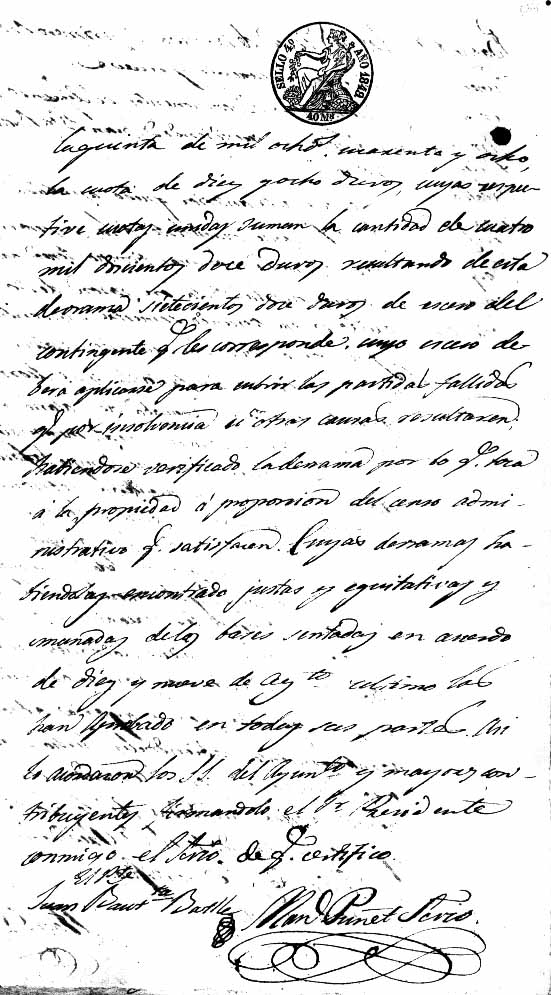 SELLO 4º AÑO 1848
40 Ms
la quinta de mil ochos. cuarenta y ocho,
la cuota de diez y ocho duros, cuyas respec-
tive cuotas unidas suman la cantidad de cuatro
mil doscientos doce duros resultando de esta
derrama setecientos doce duros de esceso del
contingente q. les corresponde. cuyo esceso de-
berá aplicarse para cubrir las partidas fallidas
q. por insolvencia ú otras causas resultaren.
Habiendose verificado la derrama por lo q. toca
á la propiedad á proporcion del censo admi-
nistrativo q. satisfacen. Cuyas derramas ha-
biendolas encontrado justas y equitativas y
emanadas de las bases sentadas en acuerdo
de diez y nueve de último las
han aprobado en todas sus partes. Asi
lo acordaron los SS. del Ayunto. y mayores con-
tribuyentes firmandolo el Sr. Presidente
conmigo el Srio. de q. certifico.
El Pte
Juan Bauta Batlle
Manl Punet Srio.